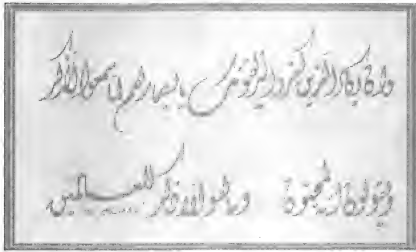 وان يكاد الذين كفروا ليزلقونك بابصارهم لما سمعوا الذكر
ويقولون انه لمجنون وما هو الا ذكر للعالمين